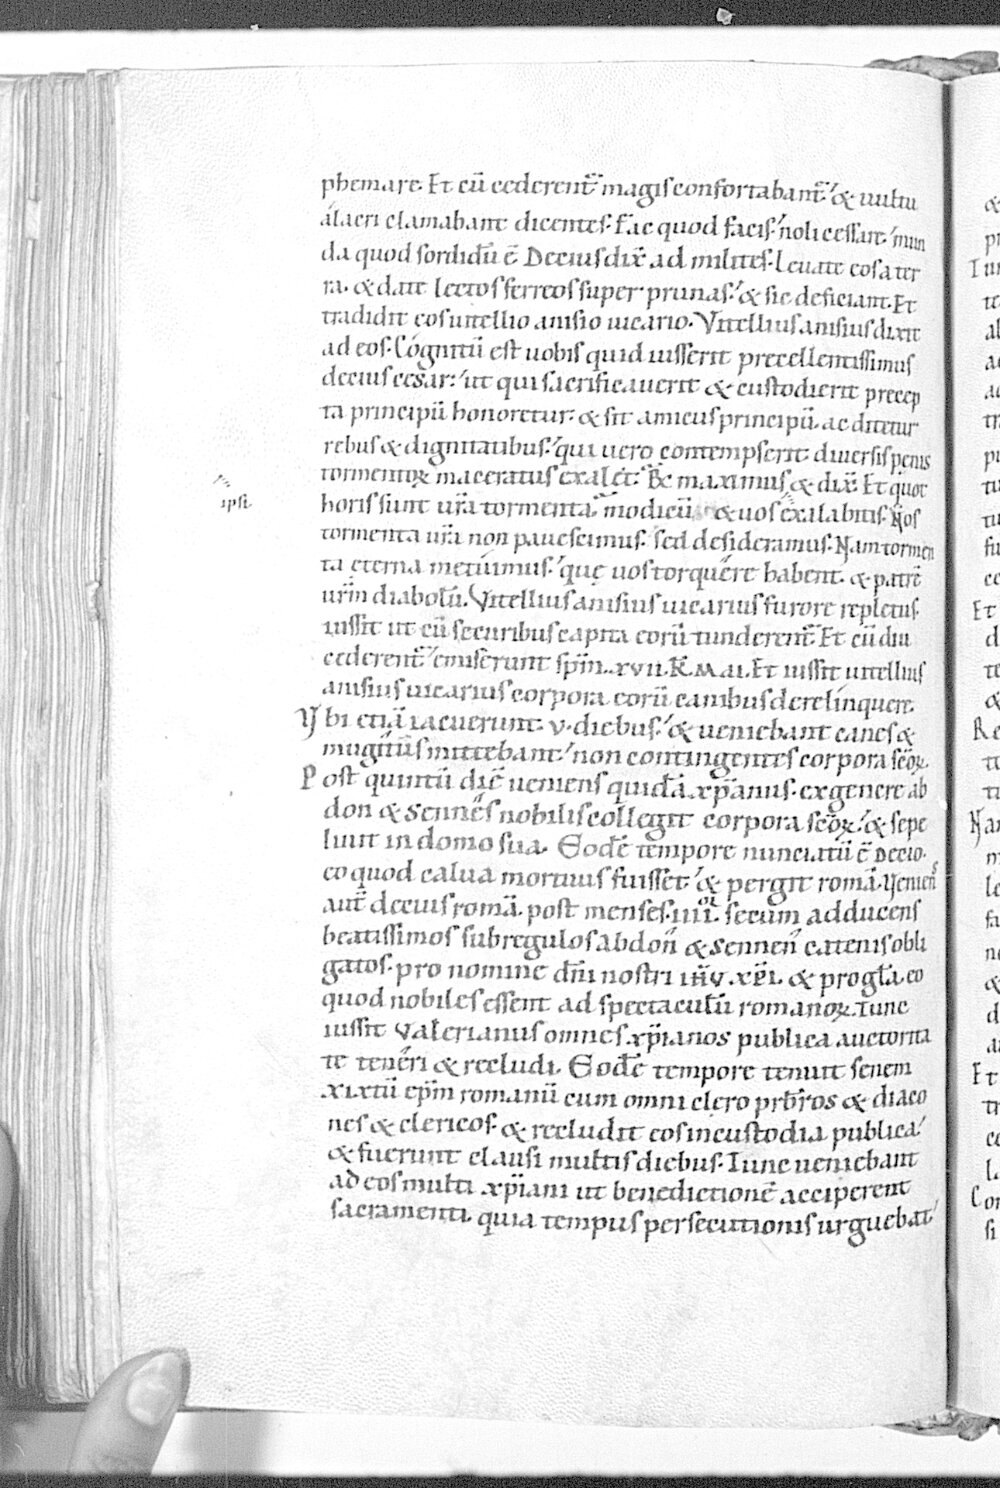 phemare. Et cū cederent᷑ magis confortabant᷑. & uultu
alacri clamabant dicentes. Fac quod facis. noli cessare. mun
da quod sordidū ē. Decius dix̄ ad milites. Leuate eos a ter
ra. & date lectos ferreos super prunas. & sic deficiant. Et
tradidit eos uitellio anisio uicario. Vitellius anisius dixit
ad eos. Cognitū est uobis quid iusserit precellentissimus
decius cęsar. ut qui sacrificauerit & custodierit precep
ta principū honoretur. & sit amicus principū. ac ditetur
rebus & dignitatibus. qui uero contempserit diuersis penis
tormentoꝝ maceratus exalet. R̄ maximus & dix̄. Et quot
horis sunt ur̄a tormenta. modicū & uos exalabitis. Nos
ipsi.
tormenta ur̄a non pauescimus. sed desideramus. Nam tormen
ta eterna metuimus. quę uos torquere habent. & patrē
ur̄m diabolū. Vitellius anisius uicarius furore repletus
iussit ut cū securibus capita eorū tunderent᷑. Et cū diu
cederent᷑ emiserunt sp̄m. xvii. K̄ mai. Et iussit uitellius
anisius uicarius corpora eorū canibus derelinquere.
Vbi etiā iacuerunt. v. diebus. & ueniebant canes &
mugitus mittebant. non contingentes corpora sc̄oꝝ.
Post quintū diē ueniens quidā. xp̄ianus. ex genere ab
don & sennes nobilis collegit corpora sc̄oꝝ. & sepe
liuit in domo sua. Eodē tempore nunciatū ē decio.
eo quod calua mortuus fuisset. & pergit romā. Veniens
aut̄ decius romā. post menses. iiii. secum adducens
beatissimos subregulos abdon & sennen catenis obli
gatos. pro nomine dn̄i nostri ih̄v. xp̄i. & progl̄a eo
quod nobiles essent ad spectaculū romanoꝝ. Tunc
iussit valerianus omnes. xp̄ianos publica auctorita
te teneri & recludi. Eodē tempore tenuit senem
xixtū ep̄m romanū cum omni clero prb̄ros & diaco
nes & clericos. & recludit eos in custodia publica.
& fuerunt clausi multis diebus. Tunc ueniebant
ad eos multi xp̄iani ut benedictionē acciperent
sacramenti. quia tempus persecutionis urguebat.